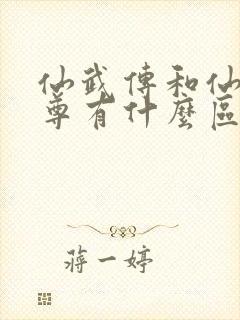 仙武傳和仙
尊有什麼區
蔣一婷